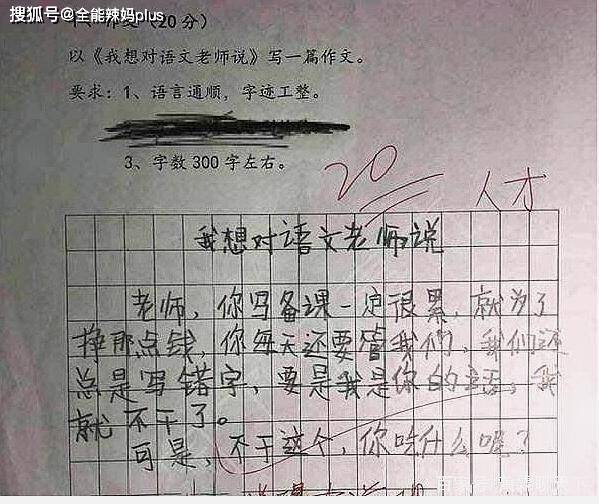 搜狐号@全能辣妈plus
(20分)
以《我想对语文老师说》写一篇作文。
要求：1、语言通顺，字迹工整。
3、字数300字左右。
20
人才
我想对语文老师说
老师，你写备课一定很累，就为了
挣那点钱，你每天还要管我们，我们还
总是写错字，要是我是你的话，我
就不干了。
可是，不干这个，你吃什么呢？